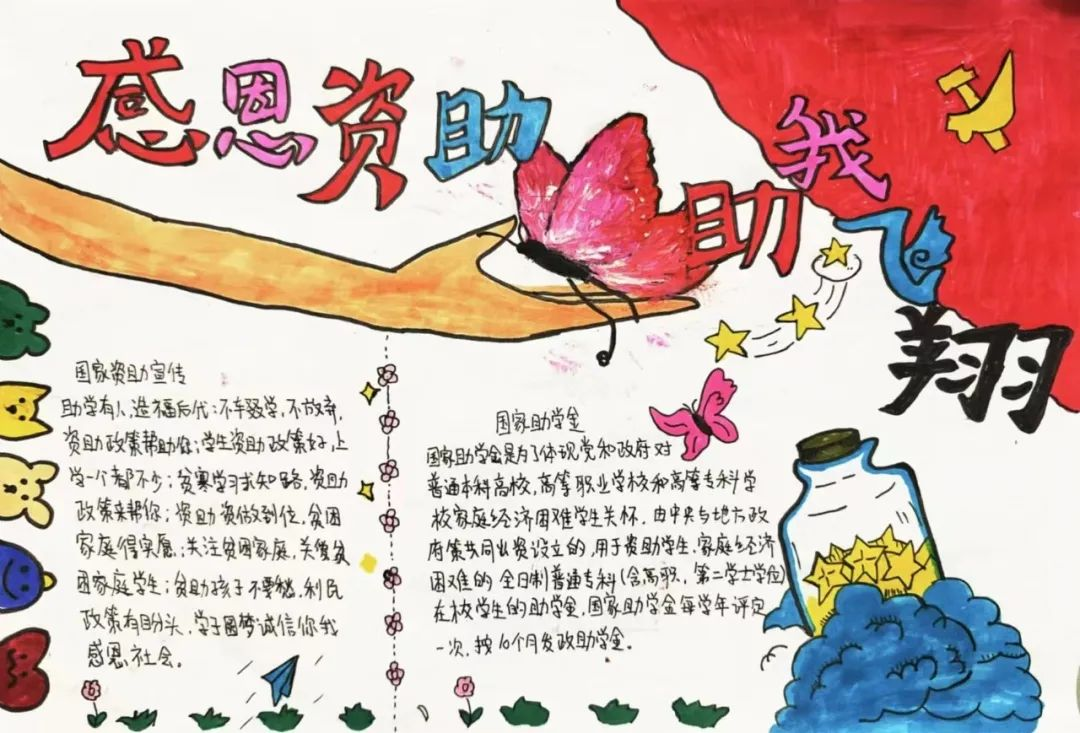 感恩资助
助我飞翔
国家资助宣传
助学有人，造福后代；不辍学，不放弃，
资助政策帮助你；学生资助政策好，上
学一个都不少；贫寒学习求知路，资助
政策来帮你；资助资做到位，贫困
家庭得实惠；关注贫困家庭，关爱贫
困家庭学生；贫助孩子不要愁，利民
政策有盼头，学子圆梦诚信你我
感恩社会。
国家助学金
国家助学金是为了体现党和政府对
普通本科高校，高等职业学校和高等专科学
校家庭经济困难学生关怀，由中央与地方政
府策共同出资设立的，用于资助学生，家庭经济
困难的全日制普通专科（含高职，第二学士学位）
在校学生的助学金，国家助学金每学年评定
一次，按10个月发放助学金。